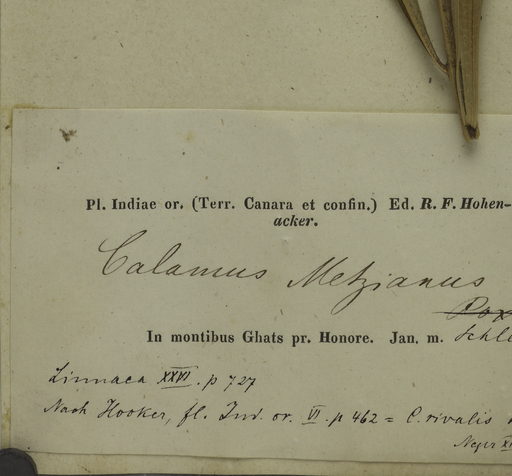 Pl. Indiae or. (Terr. Canara et confin.) Ed. R. F. Hohen-
acker.
Calamus Metzianus
Rox
In montibus Ghats pr. Honore. Jan. m. Schle
Linnaea XXVI. p 727
Nach Hooker, fl. Ind. or. VI. p 462 = C. rivalis